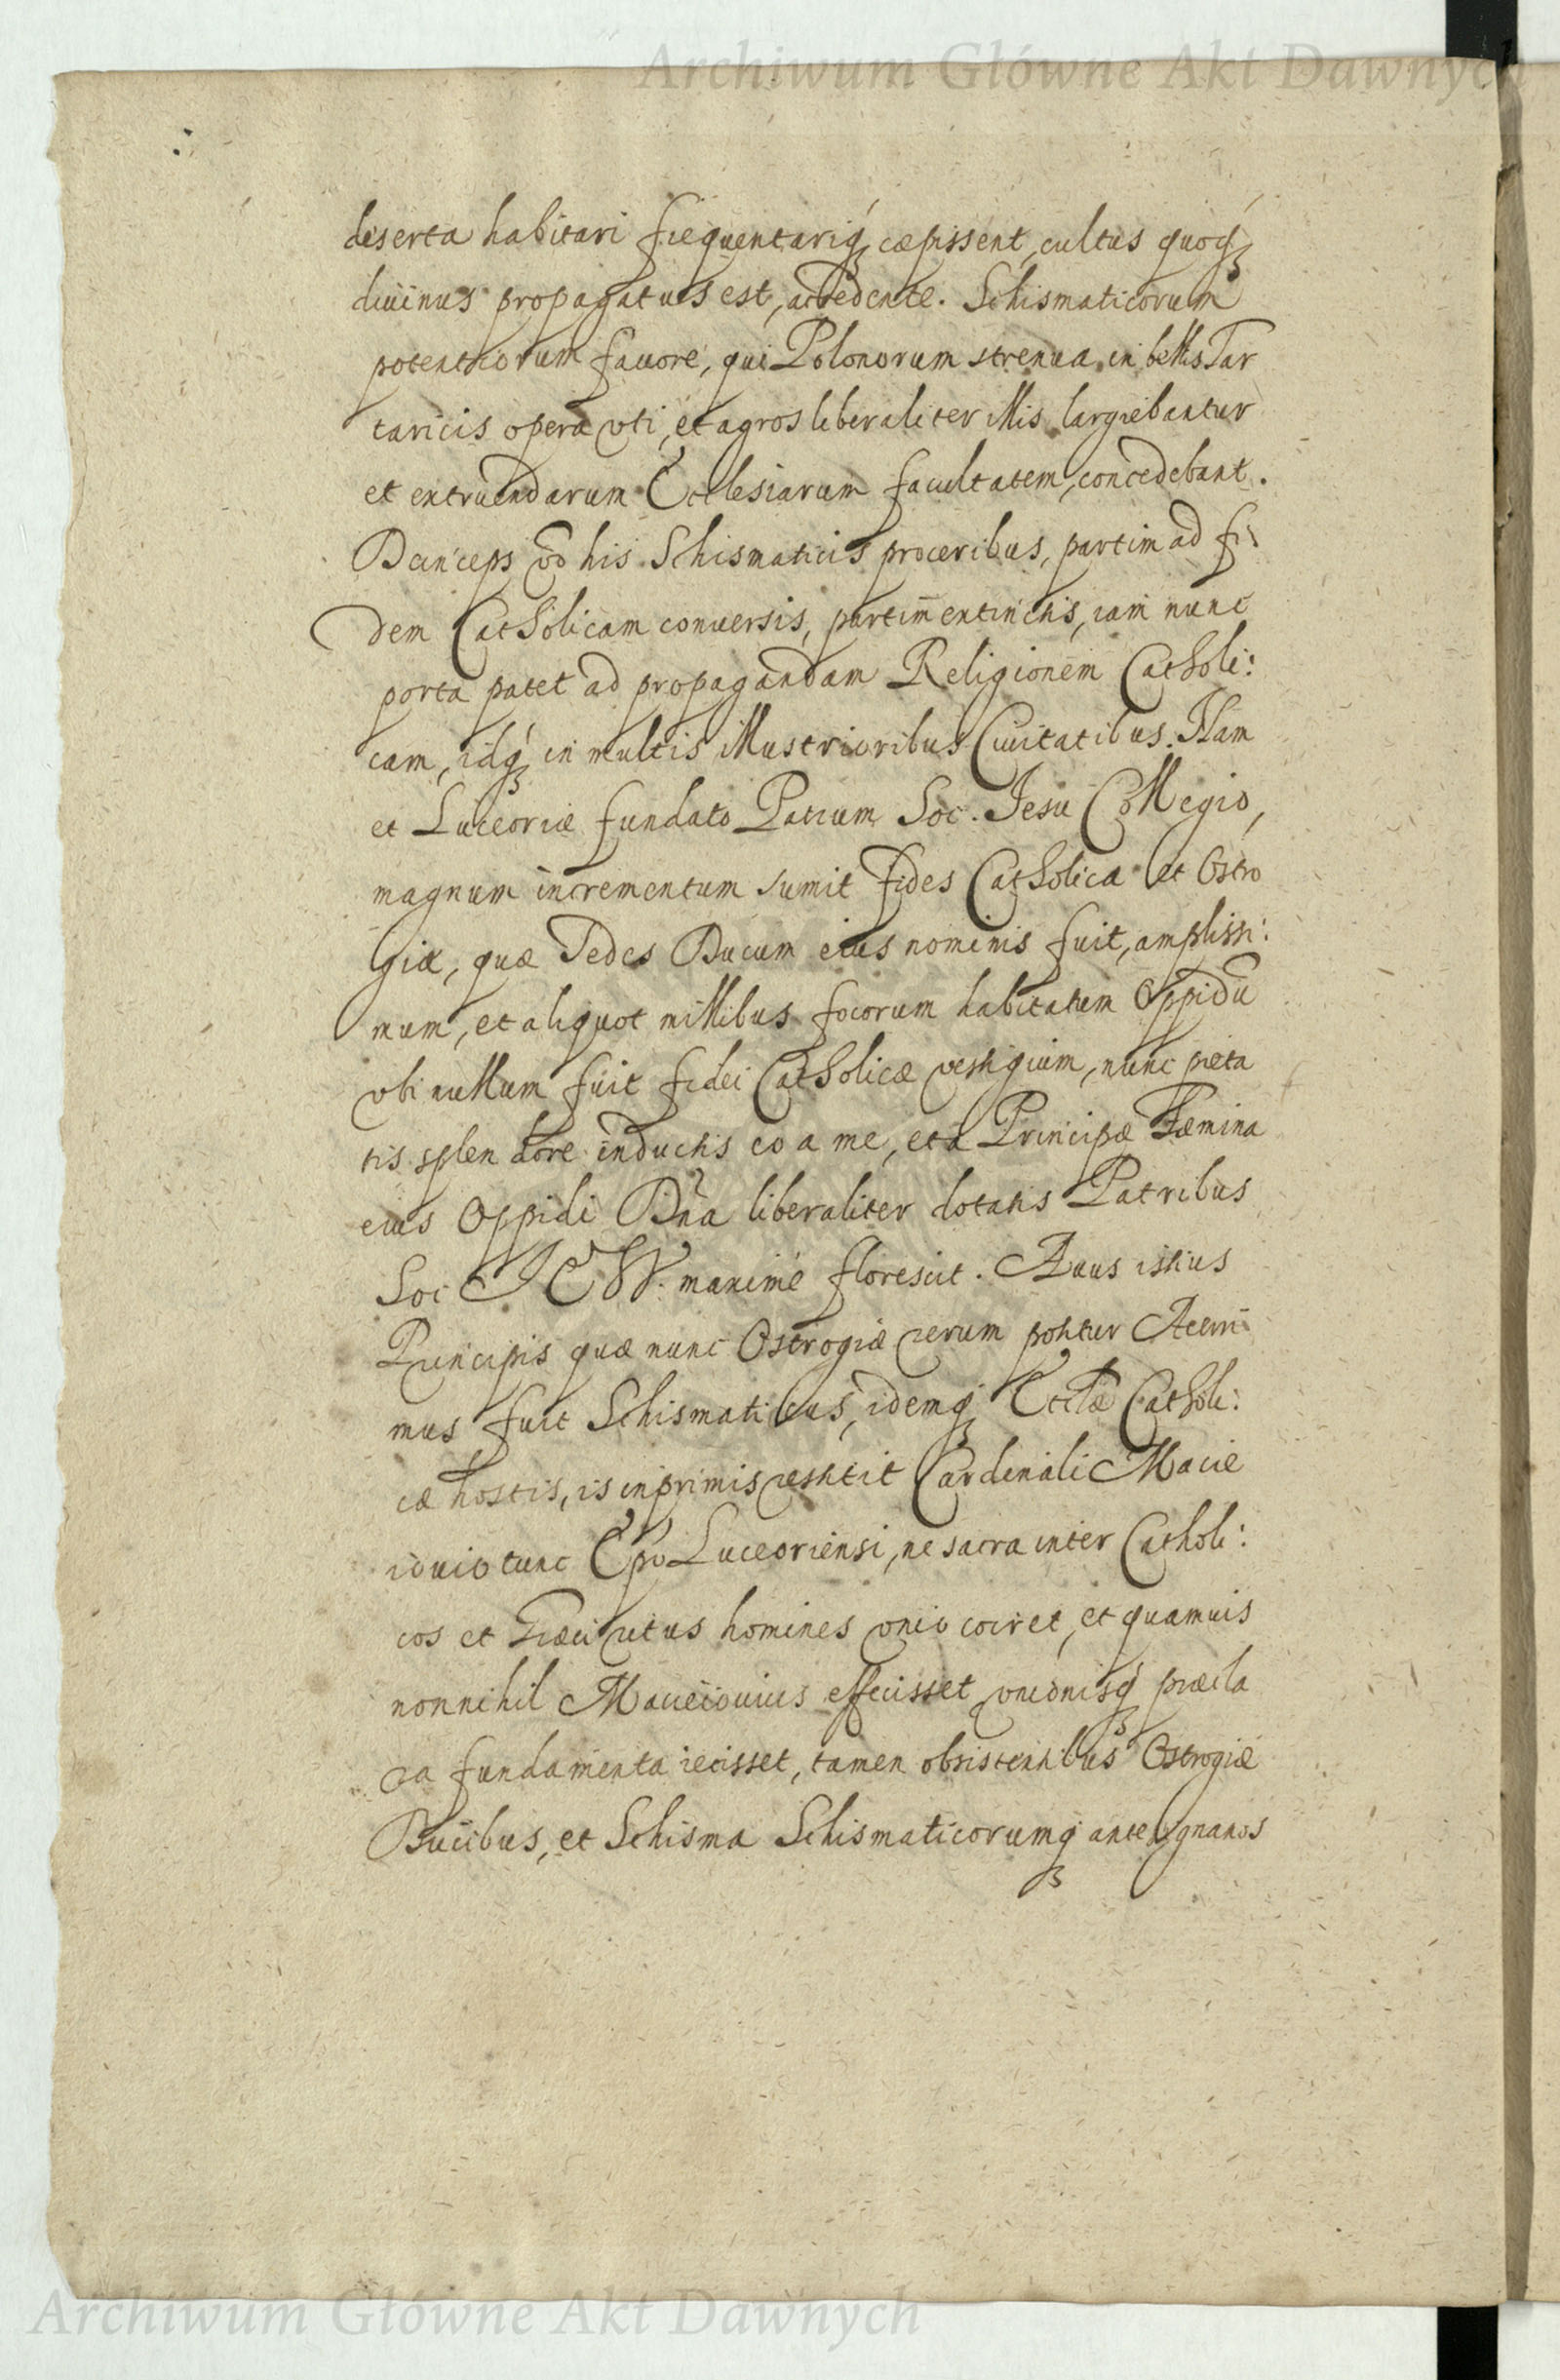 Archiwum Główne Akt Dawnych
deserta habitari frequentariq́ʒ cæpissent, cultus quoq́ʒ
diuinus propagatus est, accedente. Schismaticorum
potentiorum fauore, qui Polonorum strenua in bellis Tar
taricis opera vti, et agros liberaliter illis largiebantur
et extruendarum Ecclesiarum facultatem, concedebant.
Deinceps vō his Schismaticis proceribus, partim ad fi:
dem Catholicam conuersis, partim extinctis, iam nunc
porta patet ad propagandam Religionem Catholi:
cam, idq́ʒ in multis Illustrioribus Ciuitatibus. Nam
et Luceoriæ fundato Patrum Soc. Jesu Collegio,
magnum incrementum sumit fides Catholica et Ostro
giæ, quæ Sedes Ducum eius nominis fuit, amplissi:
mum, et aliquot millibus focorum habitatum Oppidū
vbi nullum fuit fidei Catholicæ vestigium, nunc pieta
tis splendore inductis eo a me, et a Principe Fæmina
eius Oppidi Dn̄a liberaliter dotatis Patribus
Soc JESV. maximè florescit. Auus istius
Principis quæ nunc Ostrogiæ rerum potitur Acerri
mus fuit Schismaticus, idemqʒ Eccl̄æ Catholi:
cæ hostis, is inprimis restitit Cardinali Macie
iouio tunc Ep̄o Luceoriensi, ne sacra inter Catholi:
cos et Græci ritus homines vnio coiret, et quamuis
nonnihil Macieiouius effecisset vnionisq́ʒ præcla
ra fundamenta iecisset, tamen obsistentibus Ostrogiæ
Ducibus, et Schisma Schismaticorumqʒ antesignanos
Archiwum Główne Akt Dawnych